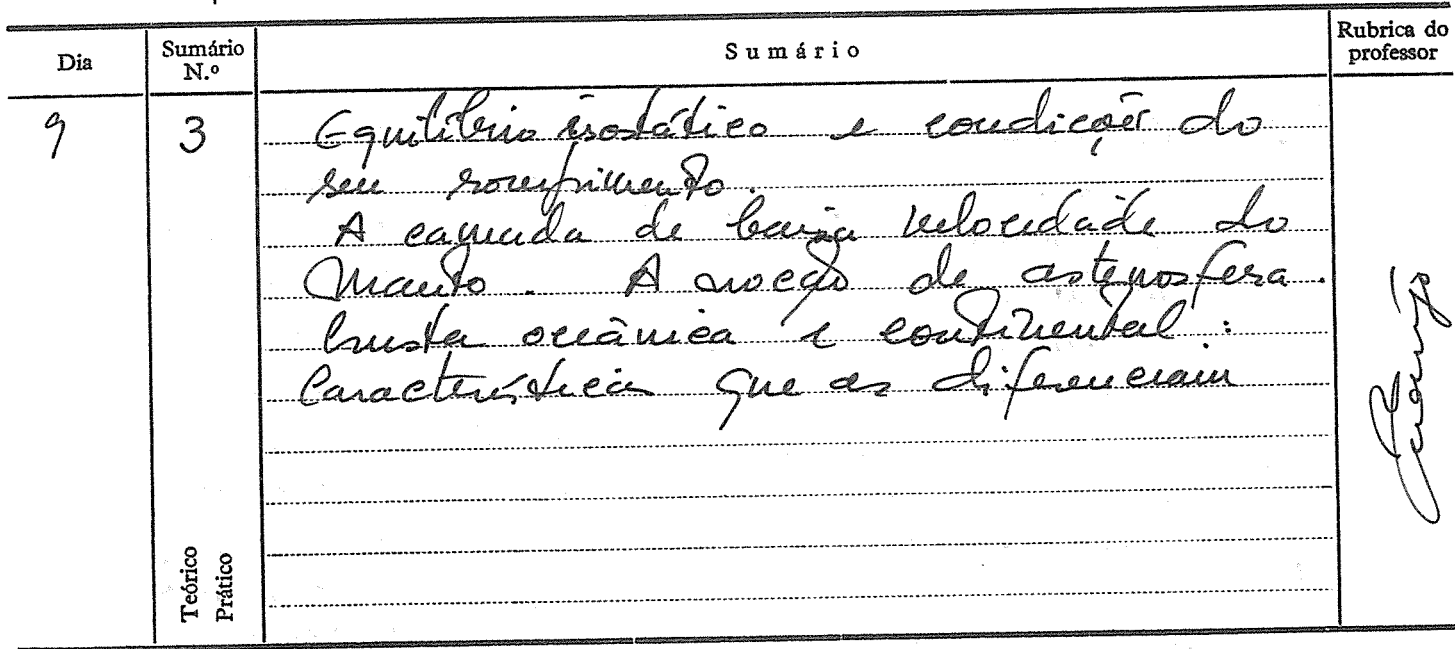 Dia
Sumário N.º
Sumário
Rubrica do professor
9
3
Equilíbrio isostático e condições do
seu rompimento.
A camada de baixa velocidade do
Manto. A noção de astenosfera.
Crusta oceânica e continental:
Características que as diferenciam
Teórico
Prático